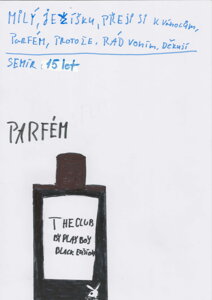 MILÝ, JEŽÍŠKU, PŘEJI SI K VÁNOCŮM,
PARFÉM, PROTOŽE, RÁD VONÍM, DĚKUJI
SEMIR: 15 let
PARFÉM
THE CLUB
BY PLAYBOY
BLACK EDITION